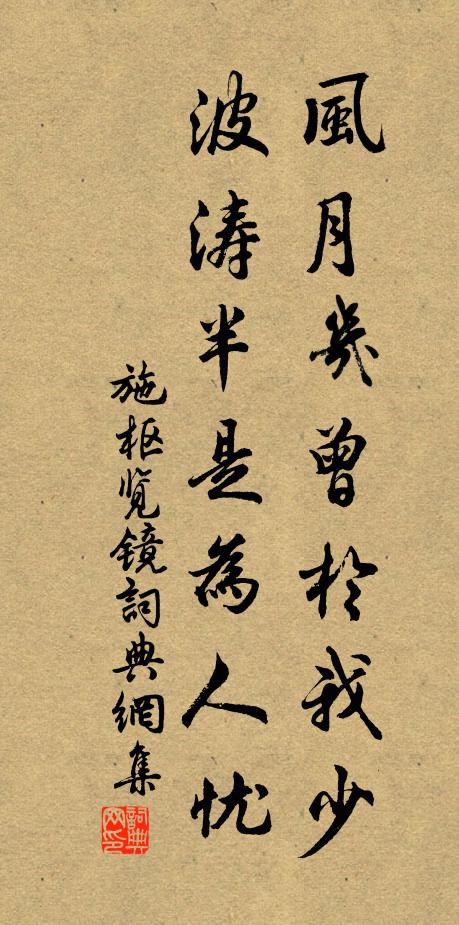 風月幾曾於我少
波涛半是為人忧
施枢览镜詞典網集
詞典网印